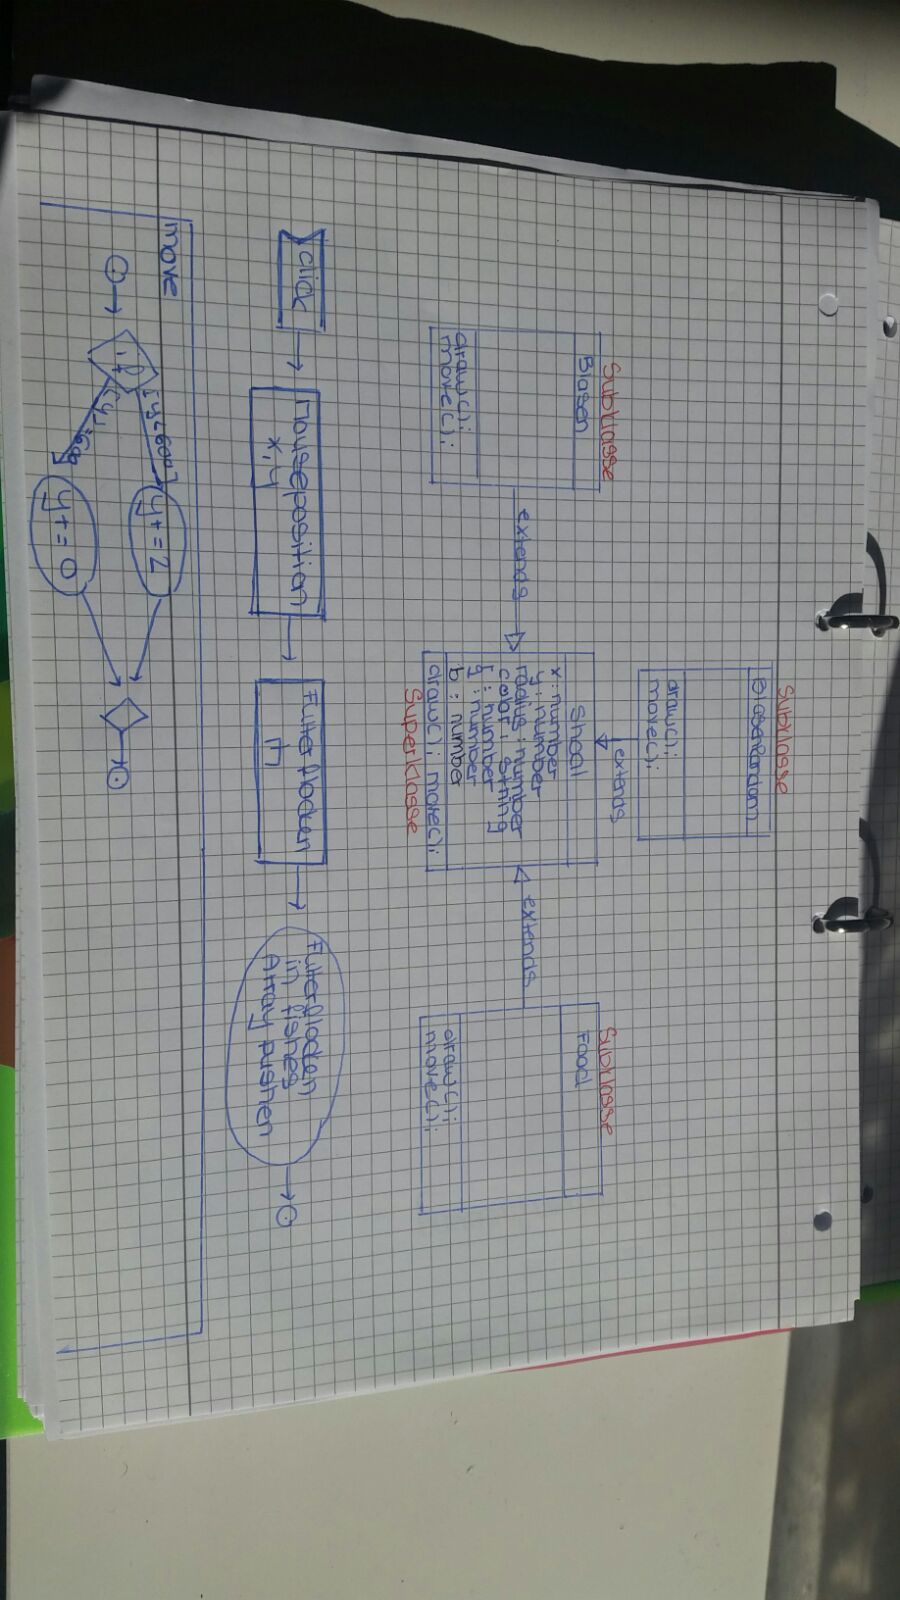 Subklasse
BlasenRandom
draw();
move();
extends
Subklasse
Blasen
draw();
move();
extends
Shell
x: number
y: number
radius: number
color: string
r: number
g: number
b: number
draw(); move();
Superklasse
extends
Subklasse
Food
draw();
move();
click
Mouseposition
x, y
Futterflocken
Futterflocken
in fishes
Array pushen
move
if
y+=2
y+=0